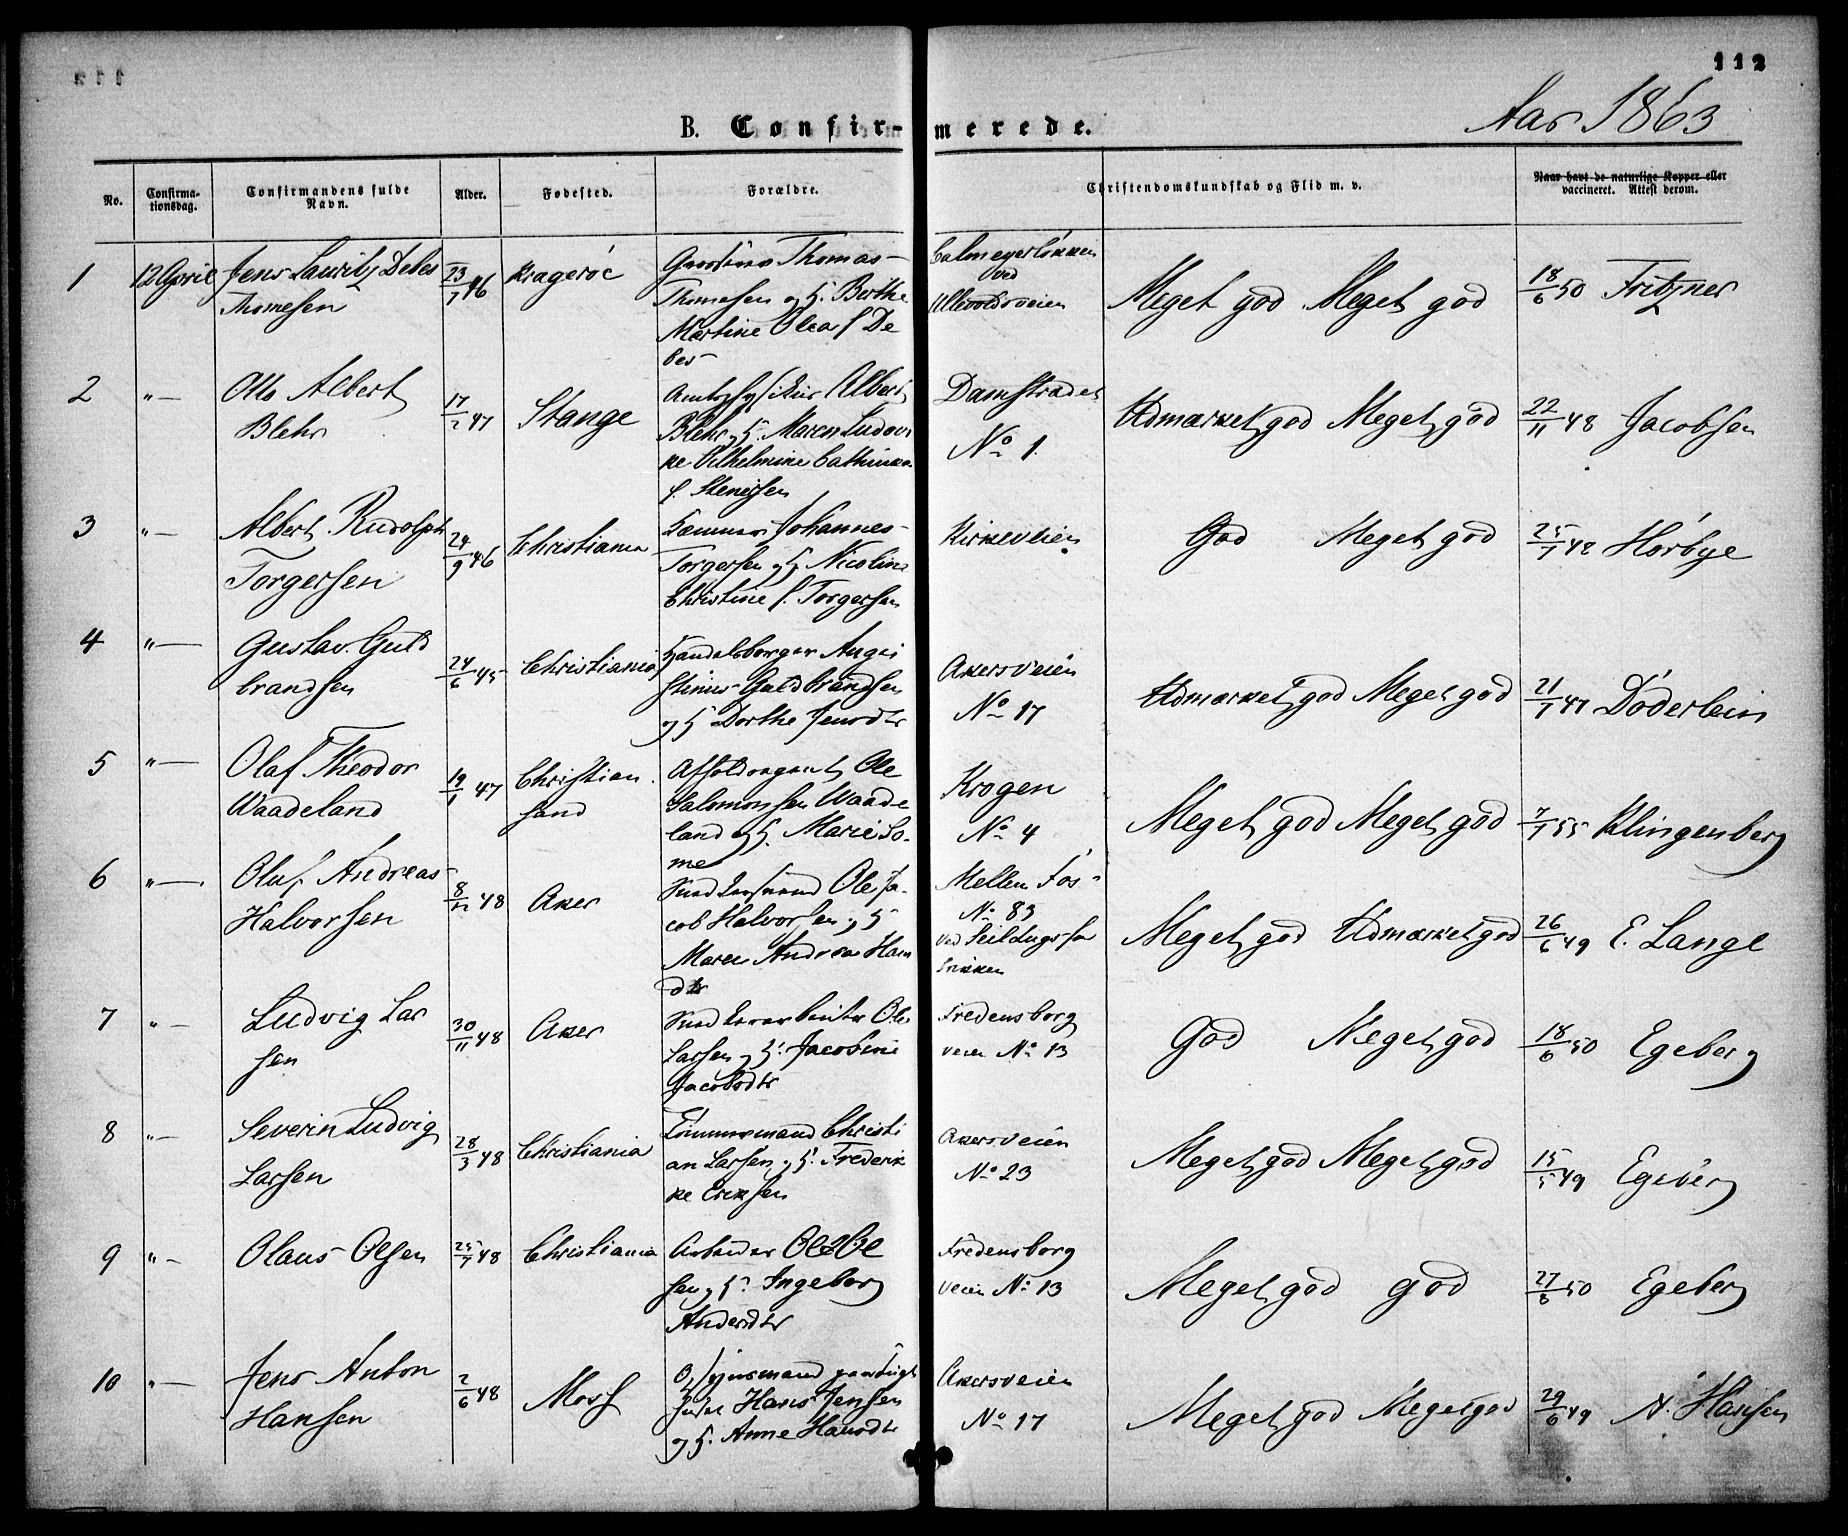 112
Aar 1863
B. Confirmerede.
No. Confirmationsdag. Confirmandens fulde Navn. Alder. Fødested. Forældre. Christendomskundskab og Flid m. v. Naar havt de naturlige Kopper eller vaccineret. Attest derom.
1 12 April Jens Lauritz Debes
Thomesen
23/7 46 Kragerøe
Thomas
Thomesen og H. Berthe
Martine Olea f. De
bes
Calmeyerløkken
ved
Ullevoldsveien
Meget god Meget god 18/6 50 Fritzner
2 " Otto Albert
Blehr
17/2 47 Stange
Amtsfysikus Albert
Blehr og H. Maren Ludovi
ke Vilhelmine Cathinka
f. Stenersen
Damstrædet
No 1.
Udmærket god Meget god 22/11 48 Jacobsen
3 " Albert Rudolph
Torgersen
24/9 46 Christiania
Johannes
Torgersen og H. Nicoline
Christine f. Torgersen
Kirkeveien
God Meget god 25/7 48 Hørbye
4 " Gustav Guld
brandsen
24/6 45 Christiania
Handelsborger Augu
stinus Guldbrandsen
og H. Dorthe Jensdtr
Akersveien
No 17
Udmærket god Meget god 21/7 47 Døderlein
5 " Olaf Theodor
Waadeland
19/1 47 Christian
sand
Ole
Salomonsen Waade
land og H. Marie So-
me
Krogen
No 4
Meget god Meget god 7/7 55 Klingenberg
6 " Oluf Andreas
Halvorsen
8/12 48 Aker
Ole Ja-
cob Halvorsen og H
Maren Andrea Han
dtr
Mellem Fos
No 83
ved Seildugsfa
brikken
Meget god Udmærket god 26/6 49 E. Lange
7 " Ludvig Lar
sen
30/11 48 Aker
Ole
Larsen og H. Jacobine
Jacobsdtr
Fredensborg
veien No 13
God Meget god 18/6 50 Egeberg
8 " Severin Ludvig
Larsen
28/3 48 Christiania
Tømmermand Christi
an Larsen og H. Frederik
ke Eriksen
Akersveien
No 23
Meget god Meget god 15/5 49 Egeberg
9 " Olaus Olsen
25/7 48 Christiania
Arbeider Ole Ole
sen og H. Ingeborg
Andersdtr
Fredensborg
veien No 13
Meget god god 27/6 50 Egeberg
10 " Jens Anton
Hansen
2/6 48 Moss
Opsynsmand
Hans Jensen
og H. Anne Hansdtr
Akersveien
No 17
Meget god Meget god 29/6 49 A. Hansen